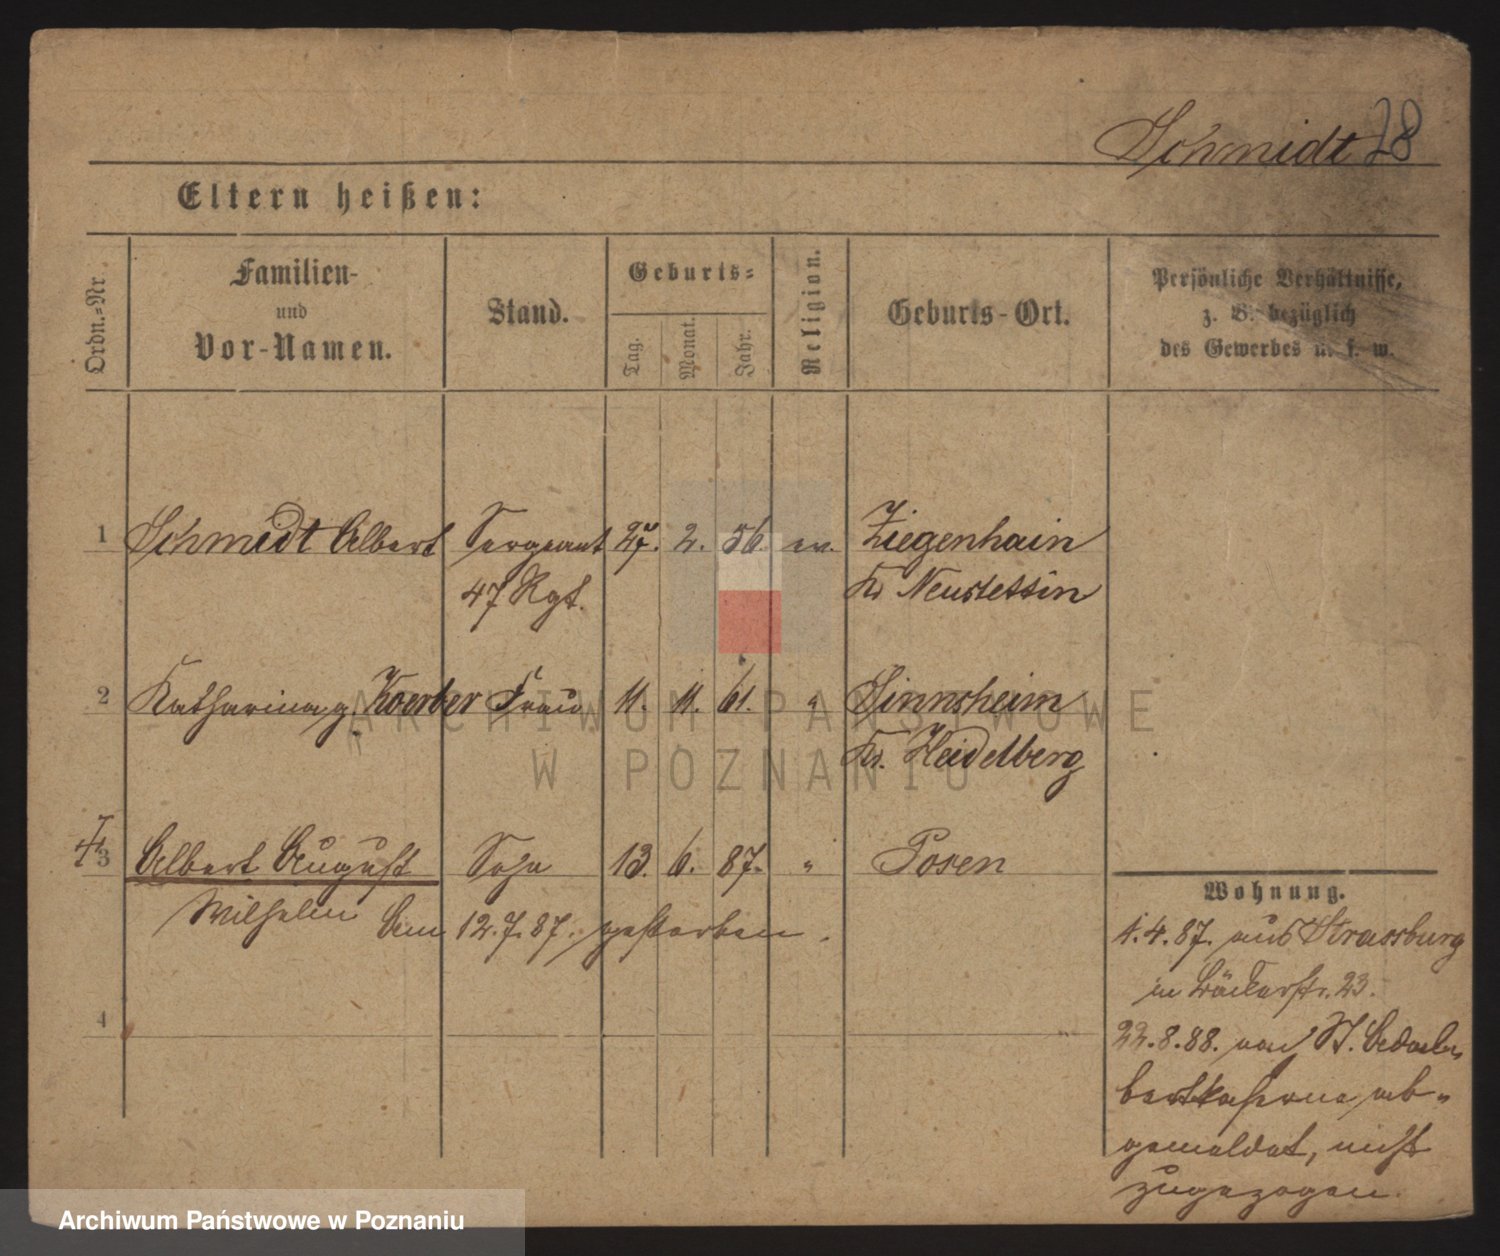 Schmidt 28
Eltern heißen:
Ordn.-Nr
Familien-
und
Vor-Namen.
Stand.
Geburts-
Tag.
Monat.
Jahr.
Religion.
Geburts-Ort.
Persönliche Verhältnisse,
z. B. bezüglich
des Gewerbes u. s. w.
1 Schmidt Albert Sergeant 27. 2. 56. ev. Ziegenhain
47 Rgt. Kr Neustettin
2 Katharina g. Koerber Frau 11. 11. 61. " Sinnsheim
Kr. Heidelberg
3 Albert August Sohn 13. 6. 87. " Posen
Wilhelm Am 12.7.87. gestorben.
4
Wohnung.
1.4.87. aus Strassburg
in Bäckerstr. 23.
22.8.88. von St. Adalbertkaserne ab-
gemeldet, nicht
zugezogen.
ARCHIWUM PAŃSTWOWE
W POZNANIU
Archiwum Państwowe w Poznaniu